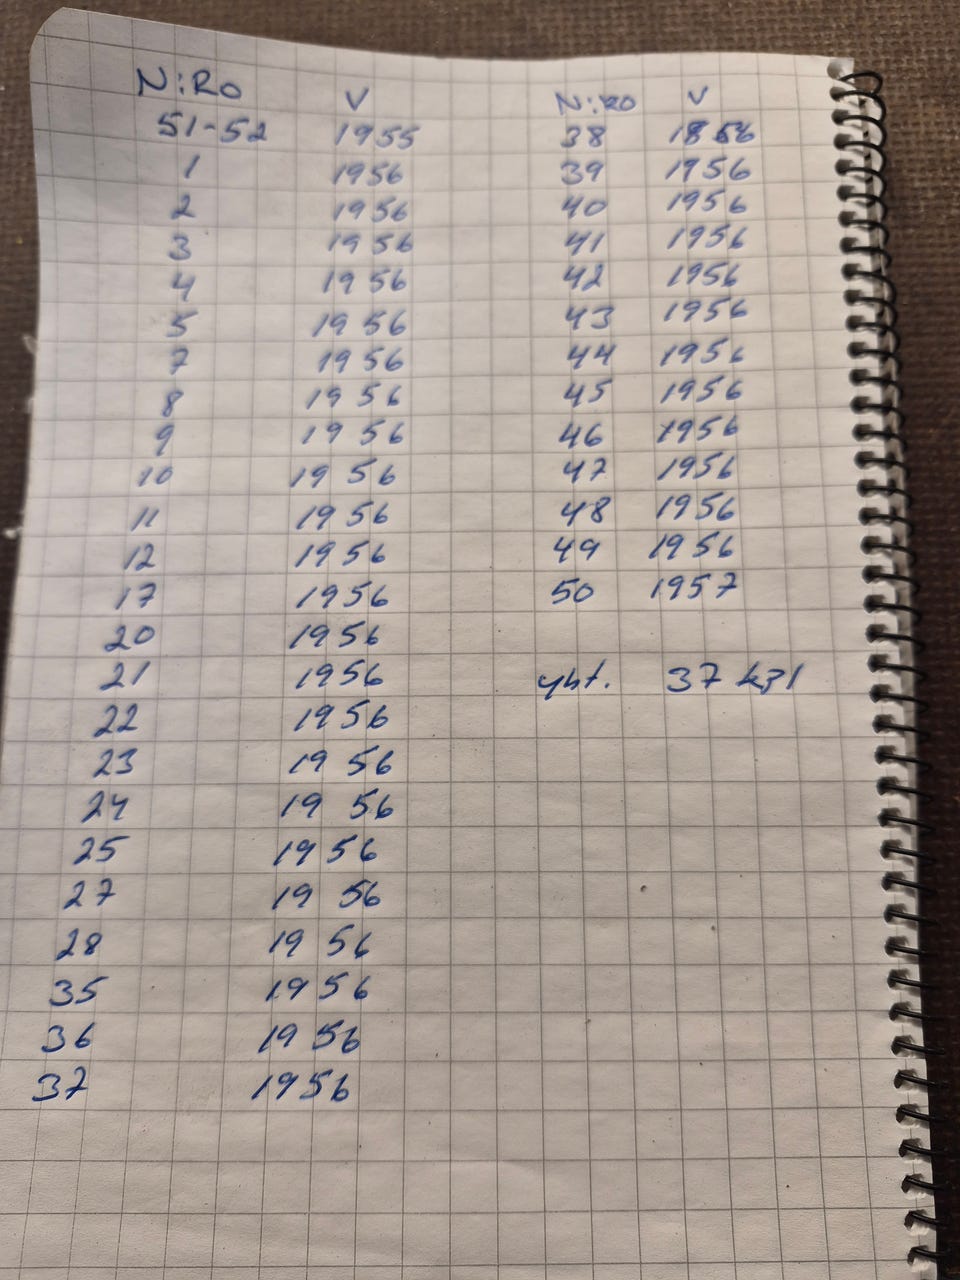 N:Ro V
51-52 1955
1 1956
2 1956
3 1956
4 1956
5 1956
7 1956
8 1956
9 1956
10 1956
11 1956
12 1956
17 1956
20 1956
21 1956
22 1956
23 1956
24 1956
25 1956
27 1956
28 1956
35 1956
36 1956
37 1956
N:Ro V
38 1856
39 1956
40 1956
41 1956
42 1956
43 1956
44 1956
45 1956
46 1956
47 1956
48 1956
49 1956
50 1957
yht. 37 kpl